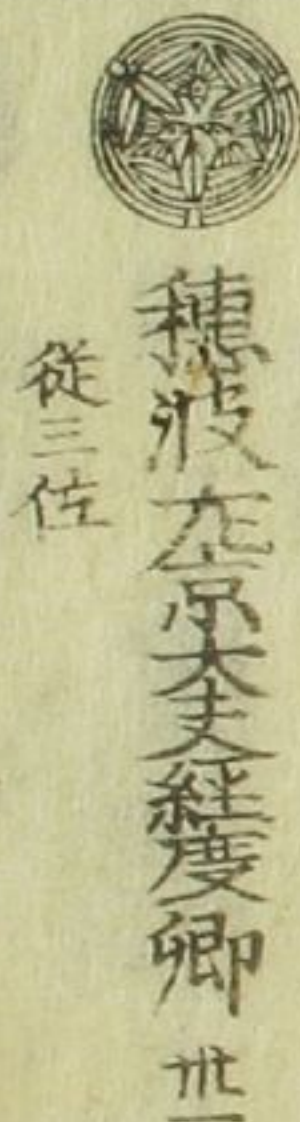 穂波左京大夫経度卿 卅
従三位